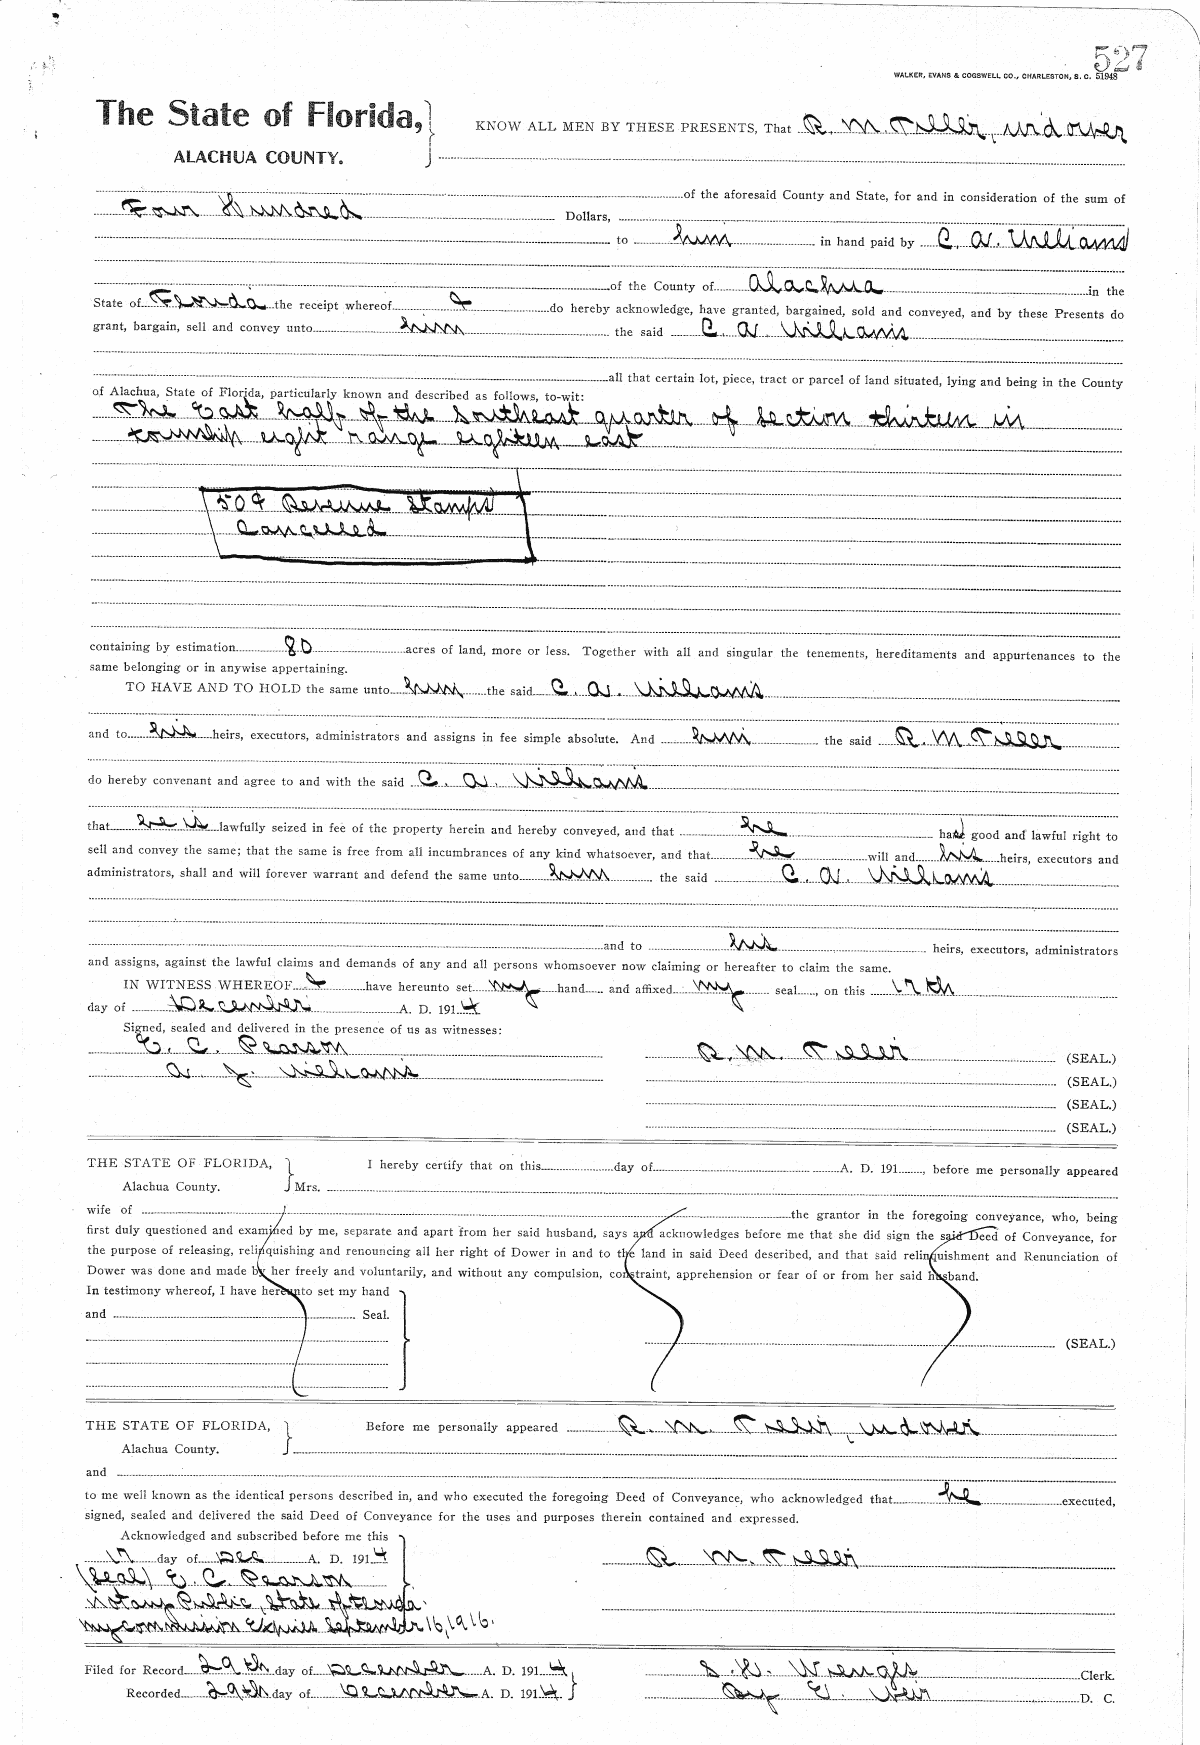 527
WALKER, EVANS & COGSWELL CO., CHARLESTON, S. C. 51948
The State of Florida,
ALACHUA COUNTY.
KNOW ALL MEN BY THESE PRESENTS, That R. M. Teller, widower
of the aforesaid County and State, for and in consideration of the sum of
Four Hundred Dollars,
to him in hand paid by C. A. Williams
of the County of Alachua in the
State of Florida the receipt whereof I do hereby acknowledge, have granted, bargained, sold and conveyed, and by these Presents do
grant, bargain, sell and convey unto him the said C. A. Williams
all that certain lot, piece, tract or parcel of land situated, lying and being in the County
of Alachua, State of Florida, particularly known and described as follows, to-wit:
The East half of the Southeast quarter of section thirteen in
township eight range eighteen east
50¢ Revenue Stamps
Cancelled
containing by estimation 80 acres of land, more or less. Together with all and singular the tenements, hereditaments and appurtenances to the
same belonging or in anywise appertaining.
TO HAVE AND TO HOLD the same unto him the said C. A. Williams
and to his heirs, executors, administrators and assigns in fee simple absolute. And him the said R. M. Teller
do hereby convenant and agree to and with the said C. A. Williams
that he is lawfully seized in fee of the property herein and hereby conveyed, and that he had good and lawful right to
sell and convey the same; that the same is free from all incumbrances of any kind whatsoever, and that he will and his heirs, executors and
administrators, shall and will forever warrant and defend the same unto him the said C. A. Williams
and to his heirs, executors, administrators
and assigns, against the lawful claims and demands of any and all persons whomsoever now claiming or hereafter to claim the same.
IN WITNESS WHEREOF I have hereunto set my hand and affixed my seal, on this 17th
day of December A. D. 1914
Signed, sealed and delivered in the presence of us as witnesses:
E. C. Pearson
A. J. Williams
R. M. Teller (SEAL.)
(SEAL.)
(SEAL.)
(SEAL.)
THE STATE OF FLORIDA,
Alachua County.
I hereby certify that on this day of A. D. 191, before me personally appeared
Mrs.
wife of the grantor in the foregoing conveyance, who, being
first duly questioned and examined by me, separate and apart from her said husband, says and acknowledges before me that she did sign the said Deed of Conveyance, for
the purpose of releasing, relinquishing and renouncing all her right of Dower in and to the land in said Deed described, and that said relinquishment and Renunciation of
Dower was done and made by her freely and voluntarily, and without any compulsion, constraint, apprehension or fear of or from her said husband.
In testimony whereof, I have hereunto set my hand
and Seal.
(SEAL.)
THE STATE OF FLORIDA,
Alachua County.
Before me personally appeared R. M. Teller, widower
and
to me well known as the identical persons described in, and who executed the foregoing Deed of Conveyance, who acknowledged that he executed,
signed, sealed and delivered the said Deed of Conveyance for the uses and purposes therein contained and expressed.
Acknowledged and subscribed before me this
17 day of Dec A. D. 1914
R. M. Teller
(Seal) E. C. Pearson
Notary Public, State of Florida.
My commission Expires September 16, 1916.
Filed for Record 29th day of December A. D. 1914
Recorded 29th day of December A. D. 1914
S. H. Wienges Clerk.
By E. Weir D. C.